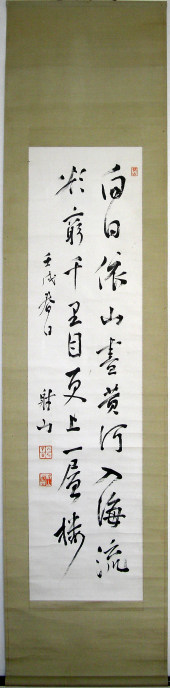 白日依山盡黄河入海流
欲窮千里目更上一層楼
壬戌春日
山